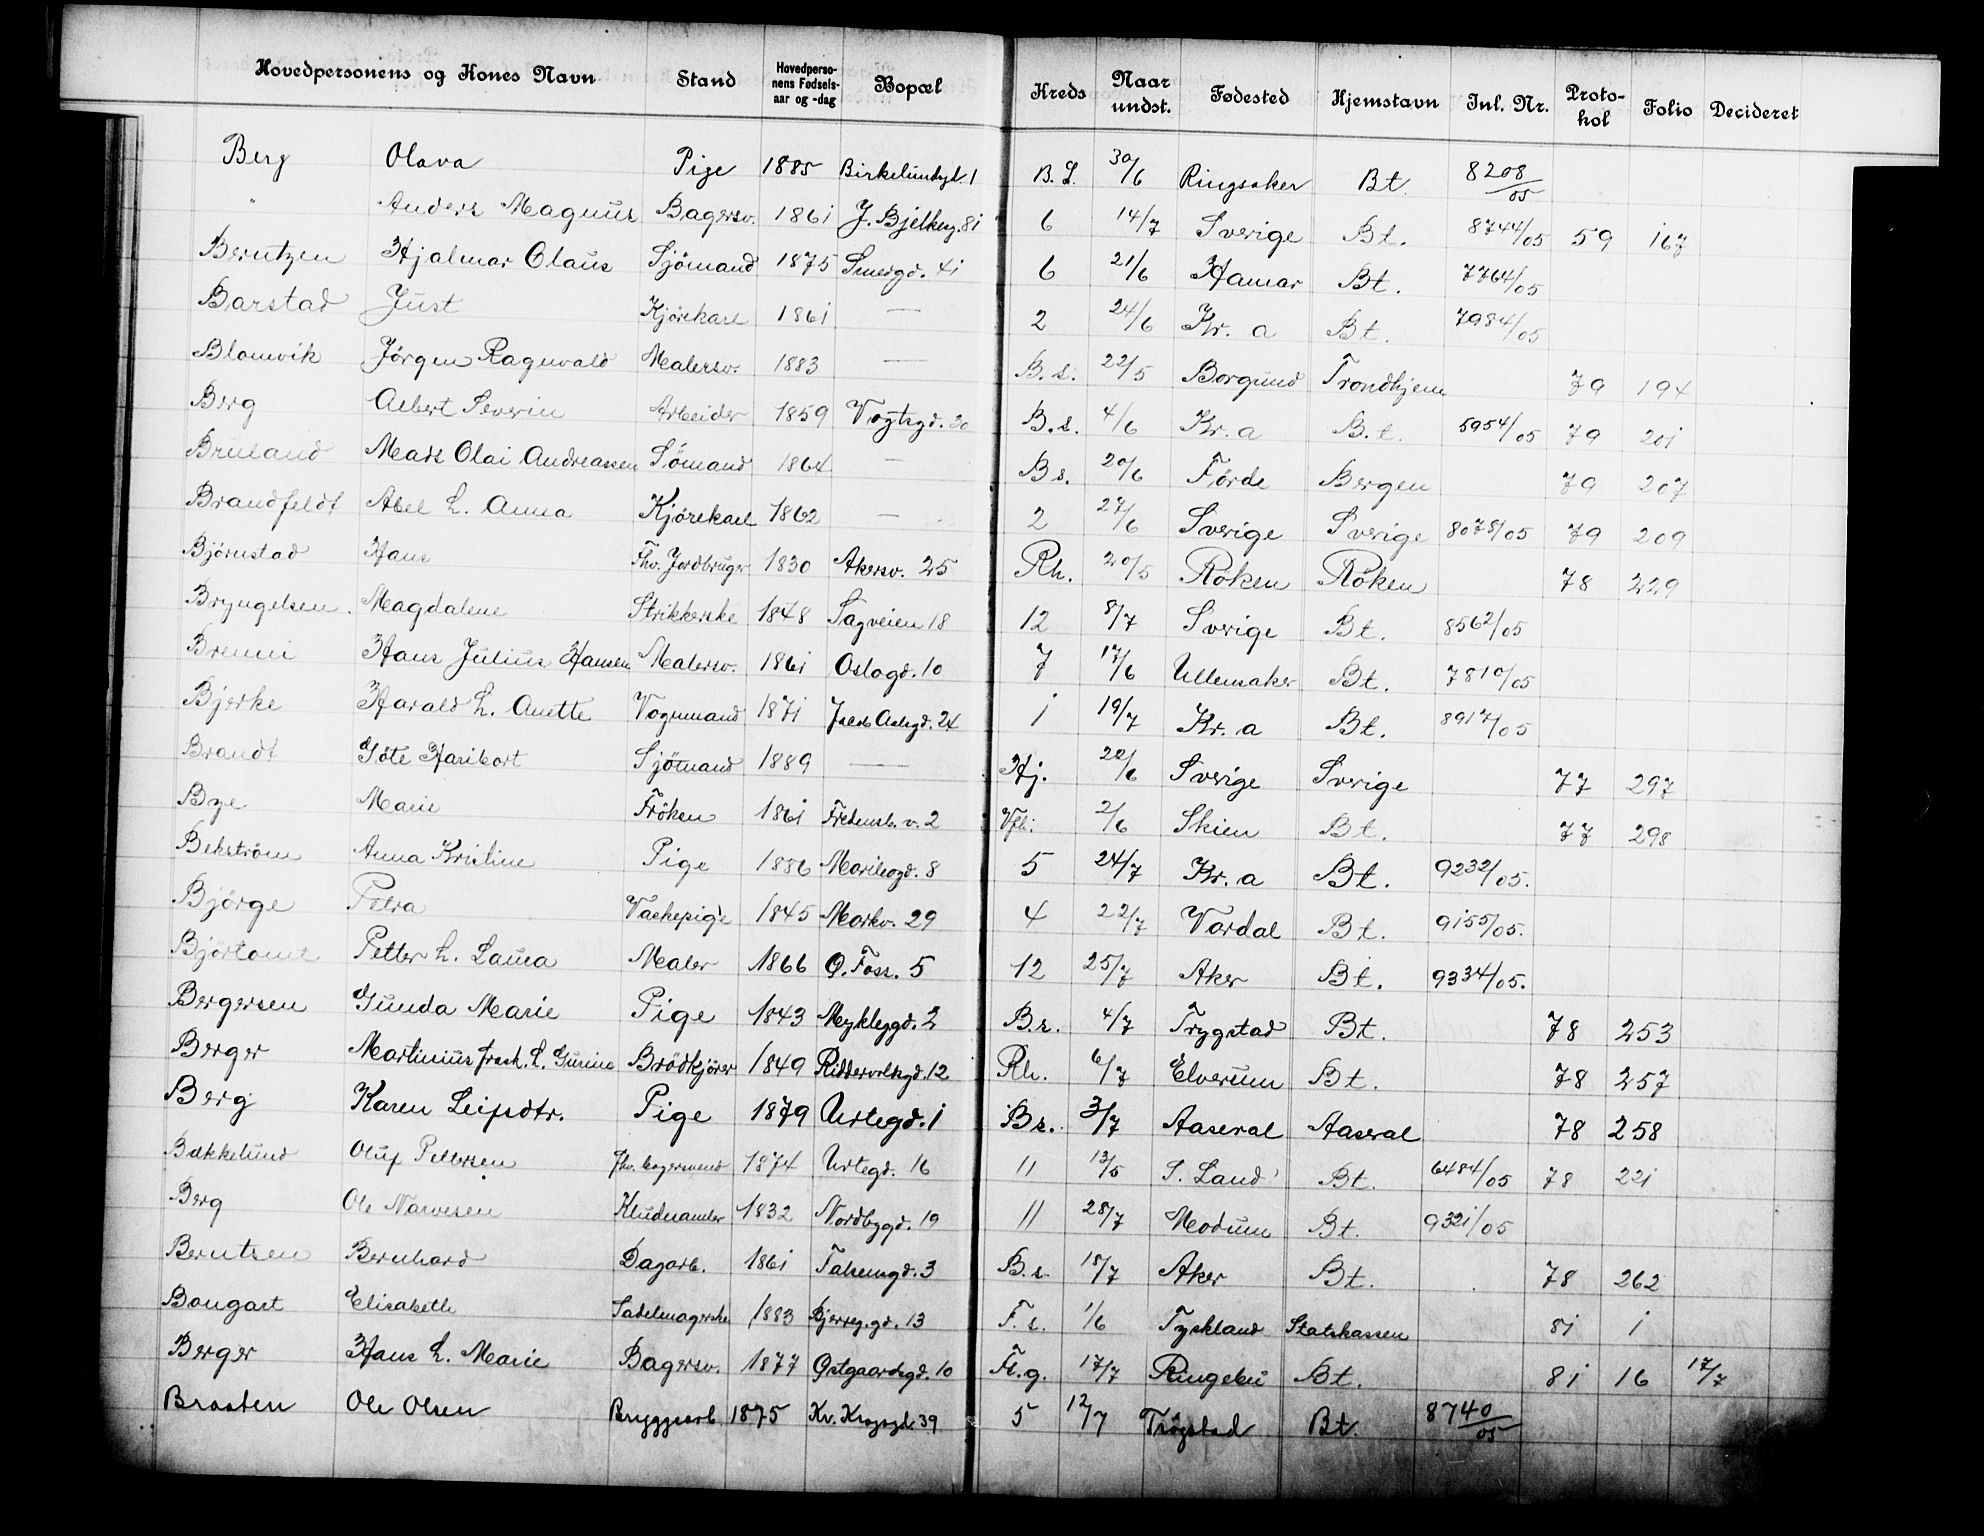 Hovedpersonens og Kones Navn Stand Hovedpersonens Fødselsaar og -dag Bopæl Kreds Naar undst. Fødested Hjemstavn Inl. Nr. Protokol Folio Decideret
Berg Olava Pige 1885 Birkelundgd. 1 B.L. 30/6 Ringsaker Bt. 8208/05
" Anders Magnus Bagersv. 1861 J. Bjelkesg. 81 6 14/7 Sverige Bt. 8744/05 59 167
Berntzen Hjalmar Olaus Sjömand 1875 Smedgd. 41 6 21/6 Hamar Bt. 7764/05
Barstad Just Kjörekarl 1861 — 2 24/6 Kr. a Bt. 7984/05
Blomvik Jörgen Ragnvald Malersv. 1883 — B.s. 22/5 Borgund Trondhjem 79 194
Berg Albert Severin Arbeider 1859 Vogtsgd. 20 B.s. 4/6 Kr. a B.t. 5954/05 79 201
Bruland Mads Olai Andreassen Sömand 1864 — B s. 20/6 Förde Bergen 79 207
Brandfeldt Abel L. Anna Kjörekarl 1862 — 2 27/6 Sverige Sverige 8078/05 79 209
Björnstad Hans Fhv. Jordbruger 1830 Akersv. 25 Rh. 20/5 Röken Röken 78 229
Bryngelsen. Magdalene Strikkerske 1848 Sagveien 18 12 8/7 Sverige Bt. 8562/05
Brenni Hans Julius Hansen Malersv. 1861 Oslogd. 10 7 17/6 Ullensaker Bt. 7810/05
Bjerke Harald L. Anette Vognmand 1871 Jacob Aalsgd. 24 1 19/7 Kr. a Bt. 8917/05
Brandt Göte Haribort Sjömand 1889 — Hj. 22/6 Sverige Sverige 77 297
Bye Marie Fröken 1861 Fredensb. v. 2 Vfh: 2/6 Skien Bt. 77 298
Bekström Anna Kristine Pige 1886 Maribogd. 8 5 24/7 Kr. a Bt. 9232/05.
Björge Petra Vaskepige 1845 Markv. 29 4 22/7 Vardal Bt. 9155/05.
Björtomt Petter L. Laura Maler 1866 Ø. Foss. 5 12 25/7 Aker Bt. 9334/05.
Bergersen Gunda Marie Pige 1843 Myklegd. 2 B.s. 4/7 Trygstad Bt. 78 253
Berger Martinius frask. L. Gurine Brödkjörer 1849 Riddervoldsgd. 12 Rh. 6/7 Elverum Bt. 78 257
Berg Karen Leifsdtr. Pige 1879 Urtegd. 1 Bs. 3/7 Aaseral Aaseral 78 258
Bækkelund Oluf Pettersen fhv. bagersvend 1874 Urtegd. 16 11 13/5 S. Land Bt. 6484/05 78 221
Berg Ole Narvesen Kludesamler 1832 Nordbygd. 19 11 28/7 Modum Bt. 9321/05
Berntsen Bernhard Dagarb. 1861 Falsensgd. 3 B.s. 18/7 Aker Bt. 78 262
Bongart Elisabeth Sadelmagerske 1883 Bjerreg.gd. 13 F.s. 1/6 Tyskland Statskassen 81 1
Berger Hans L. Marie Bagersv. 1877 Østgaardsgd. 10 Fl.g. 17/7 Ringebu Bt. 81 16 17/7
Braaten Ole Olsen Bryggearb 1875 Kv. Kroggd. 39 5 12/7 Trögstad Bt. 8740/05